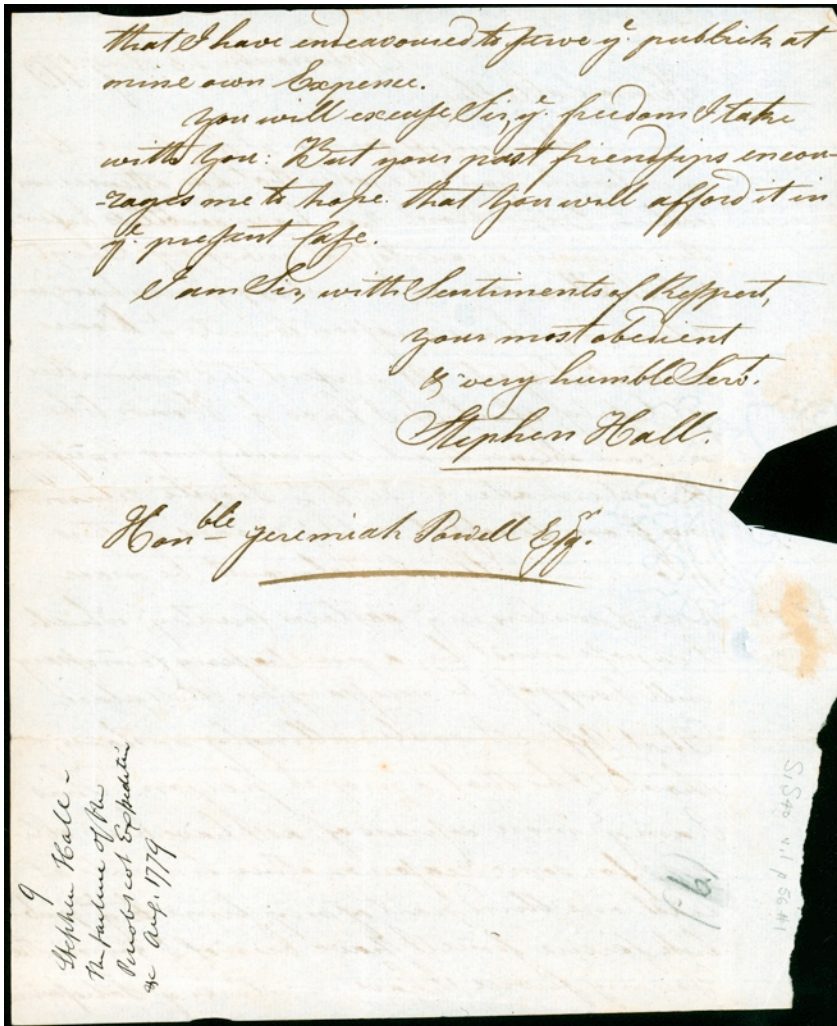 that I have endeavoured to serve yᵉ publick at
mine own Expence.
You will excuse Sir, yᵉ freedom I take
with You: But your past friendships encou-
-rages me to hope that You will afford it in
yᵉ present Case.
I am Sir, with Sentiments of Respect,
your most obedient
& very humble Servᵗ.
Stephen Hall.
Honᵇˡᵉ Jeremiah Powell Esqʳ.
9
Stephen Hall -
The failure of the
Penobscot Expedition
&c Aug. 1779
(6)
S1540 v.1 p 56 #1